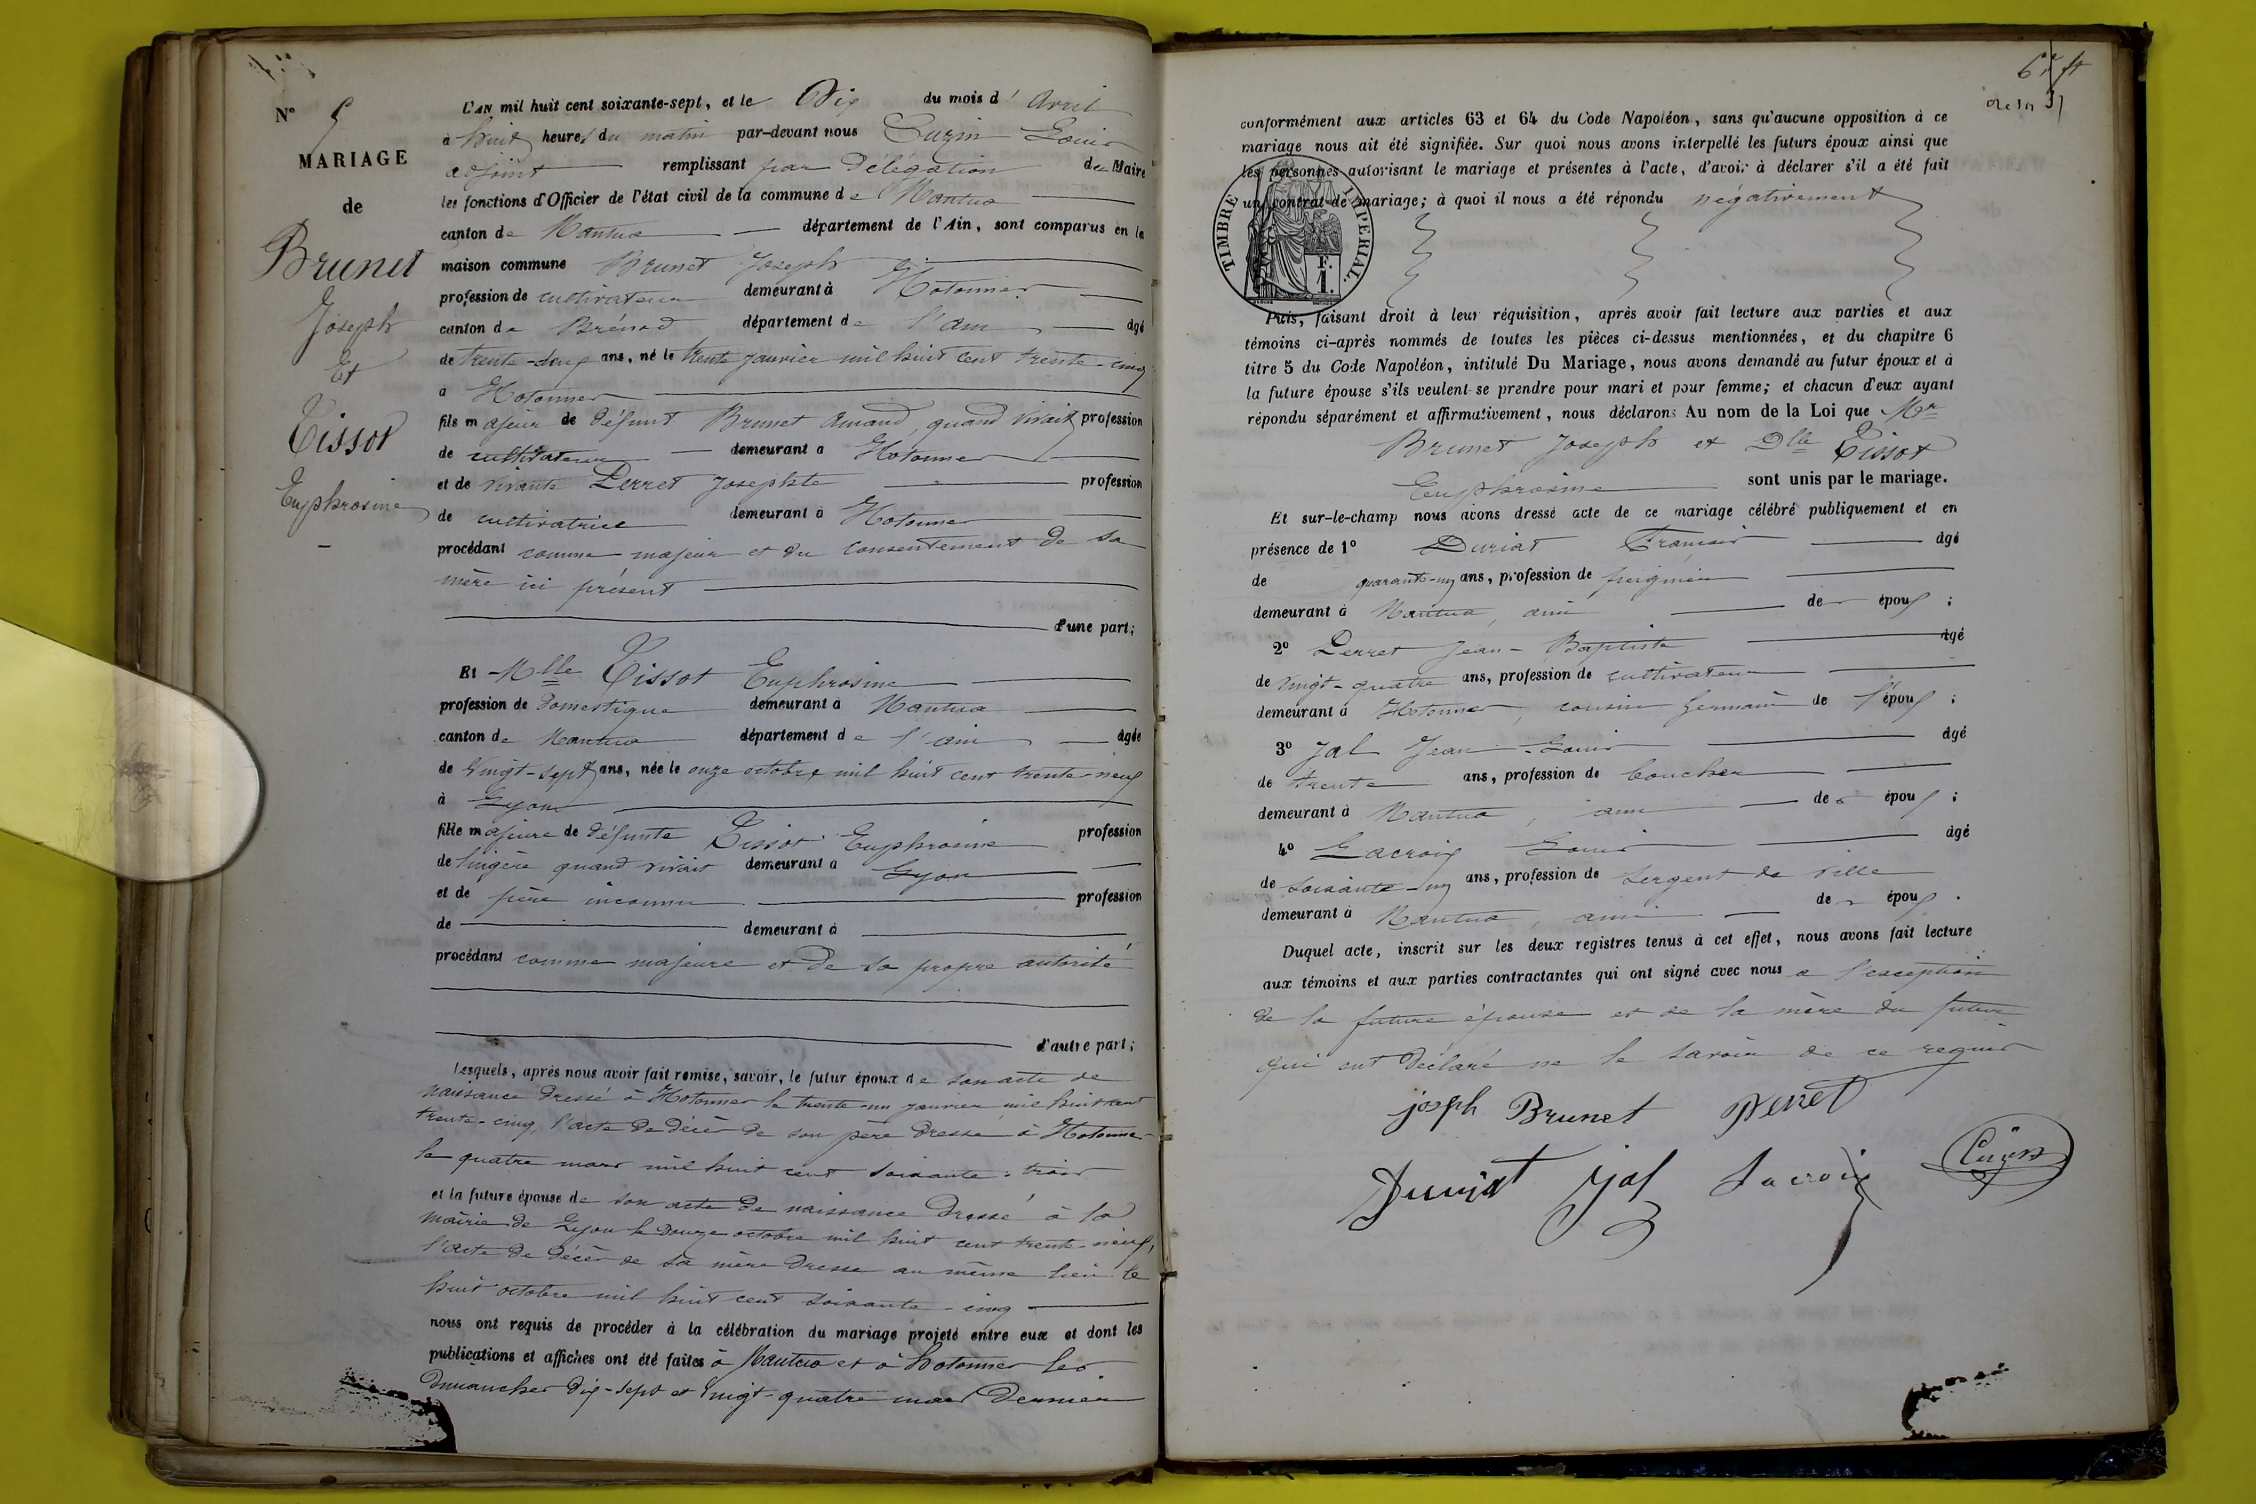 N° 5
MARIAGE
de
Brunet
Joseph
Et
Tissot
Euphrosine
L'AN mil huit cent soixante-sept, et le Dix du mois d' Avril
à huit heures du matin par-devant nous Cuzin Louis
adjoint remplissant par Délégation de Maire
les fonctions d'Officier de l'état civil de la commune de Nantua
canton de Nantua département de l'Ain, sont comparus en la
maison commune Brunet Joseph
profession de cultivateur demeurant à Hotonnes
canton de Brénod département de l'ain âgé
de trente-deux ans, né le trente janvier mil huit cent trente-cinq
à Hotonnes
fils majeur de défunt Brunet Amand, quand vivait profession
de cultivateur demeurant à Hotonnes
et de vivante Perret Josephte profession
de cultivatrice demeurant à Hotonnes
procédant comme majeur et du consentement de sa
mère ici présent
d'une part;
Et Mlle Tissot Euphrosine
profession de domestique demeurant à Nantua
canton de Nantua département de l'ain âgée
de vingt-sept ans, née le onze octobre mil huit cent trente-neuf
à Lyon
fille majeure de défunte Tissot Euphrosine profession
de lingère quand vivait demeurant à Lyon
et de père inconnu profession
de demeurant à
procédant comme majeure et de sa propre autorité
d'autre part;
Lesquels, après nous avoir fait remise, savoir, le futur époux de son acte de
naissance dressé à Hotonnes le trente-un janvier mil huit cent
trente-cinq, l'acte de décès de son père dressé à Hotonnes
le quatre mars mil huit cent soixante-trois
et la future épouse de son acte de naissance dressé à la
mairie de Lyon le douze octobre mil huit cent trente-neuf,
l'acte de décès de sa mère dressé au même lieu le
huit octobre mil huit cent soixante-cinq
nous ont requis de procéder à la célébration du mariage projeté entre eux et dont les
publications et affiches ont été faites à Nantua et à hotonnes les
Dimanches dix-sept et vingt-quatre mars dernier
conformément aux articles 63 et 64 du Code Napoléon, sans qu'aucune opposition à ce
mariage nous ait été signifiée. Sur quoi nous avons interpellé les futurs époux ainsi que
les personnes autorisant le mariage et présentes à l'acte, d'avoir à déclarer s'il a été fait
un contrat de mariage; à quoi il nous a été répondu négativement
TIMBRE IMPERIAL.
F.
1.
Puis, faisant droit à leur réquisition, après avoir fait lecture aux parties et aux
témoins ci-après nommés de toutes les pièces ci-dessus mentionnées, et du chapitre 6
titre 5 du Code Napoléon, intitulé Du Mariage, nous avons demandé au futur époux et à
la future épouse s'ils veulent se prendre pour mari et pour femme; et chacun d'eux ayant
répondu séparément et affirmativement, nous déclarons Au nom de la Loi que Mr
Brunet Joseph et Dlle Tissot
Euphrosine sont unis par le mariage.
Et sur-le-champ nous avons dressé acte de ce mariage célébré publiquement et en
présence de 1° Duriat François âgé
de quarante-un ans, profession de peignier
demeurant à Nantua, ami des époux ;
2° Perret Jean-Baptiste âgé
de vingt-quatre ans, profession de cultivateur
demeurant à Hotonnes, cousin germain de l'époux ;
3° Jal Jean-Louis âgé
de trente ans, profession de boucher
demeurant à Nantua, ami des époux ;
4° Lacroix Louis âgé
de soixante-un ans, profession de sergent de ville
demeurant à Nantua, ami des époux.
Duquel acte, inscrit sur les deux registres tenus à cet effet, nous avons fait lecture
aux témoins et aux parties contractantes qui ont signé avec nous à l'exception
de la future épouse et de la mère du futur
qui ont déclaré ne le savoir de ce requis
joseph Brunet Perret
Duriat Jal Lacroix Cuzin